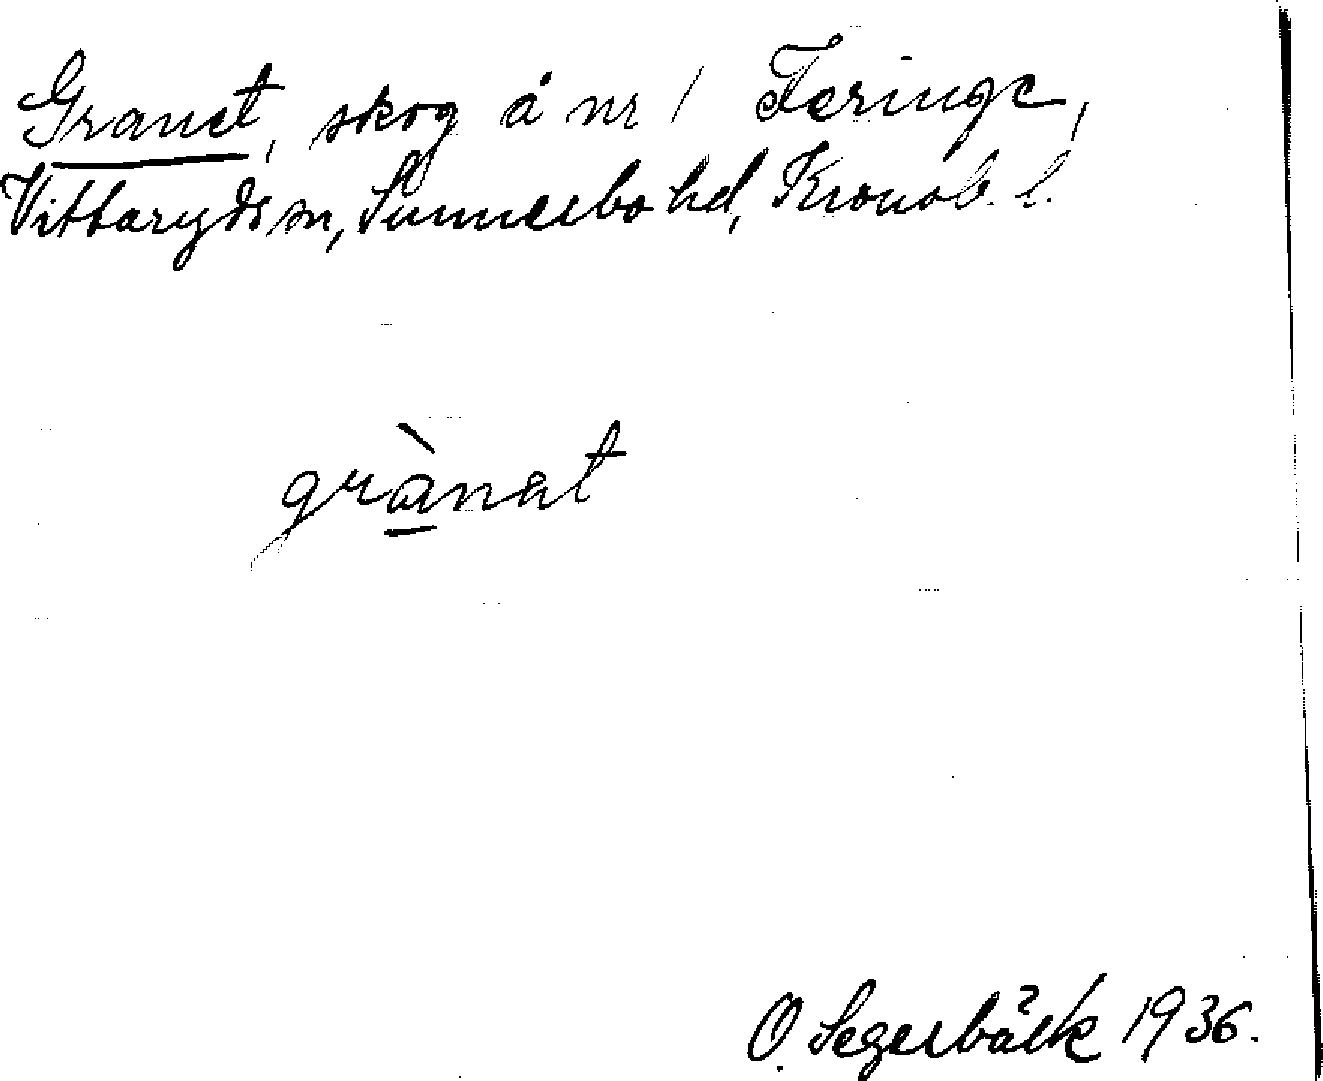 Granet, skog å nr 1 Feringe,
Vittaryds sn, Sunnerbo hd, Kronob. l.
grànat
O. Segerbäck 1936.